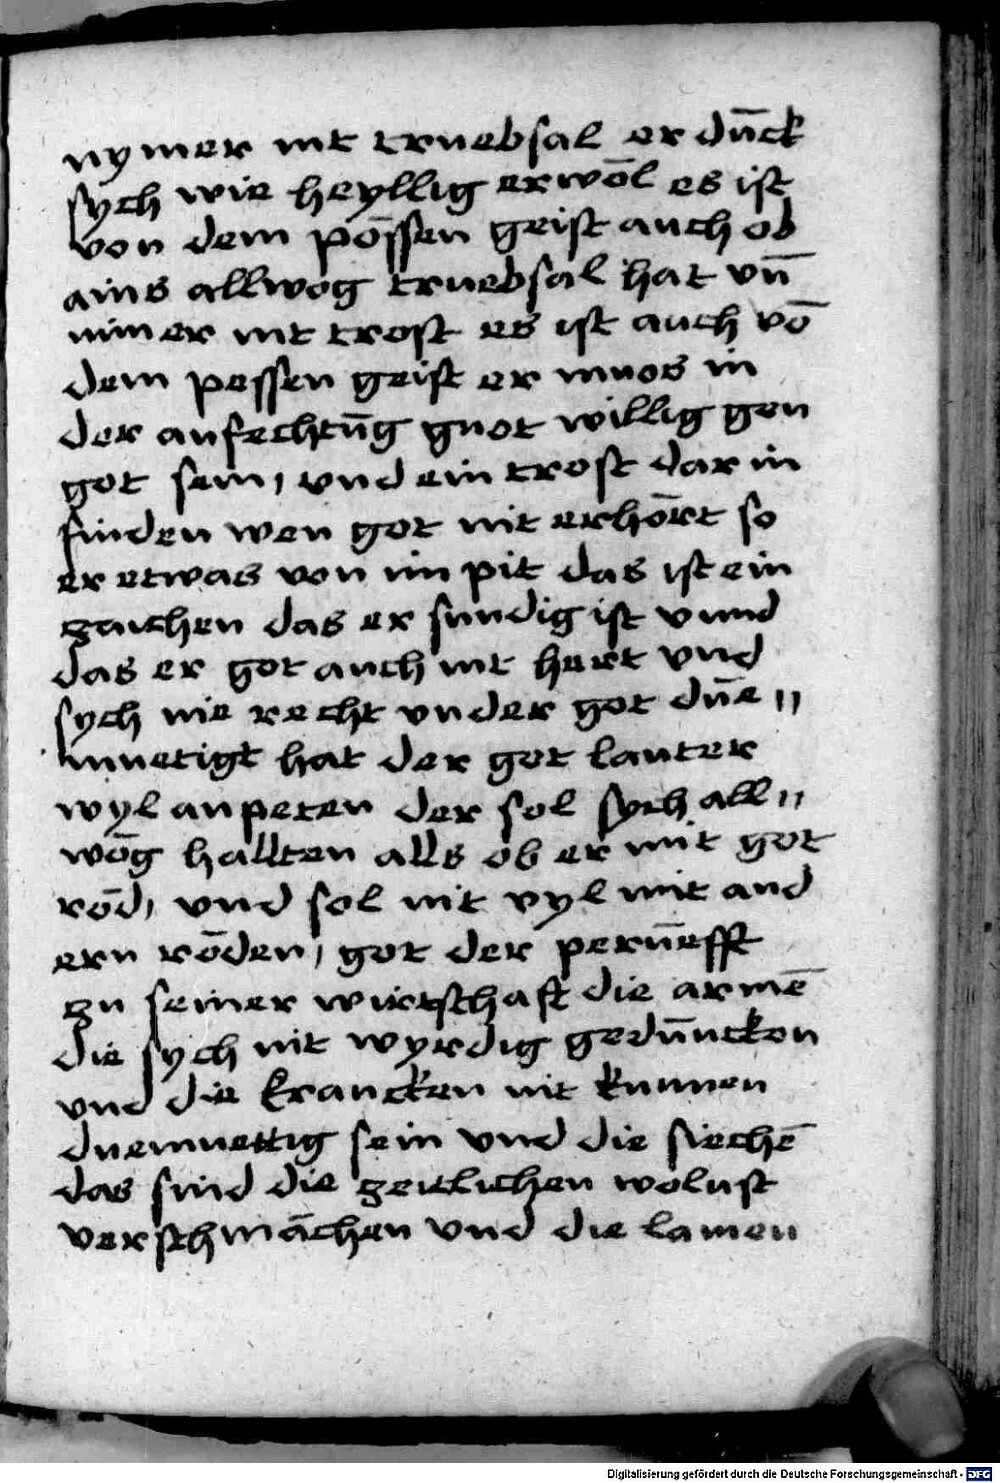 nymer nit truebsal er dūnck
sych wie heyllig er wōl es ist
von dem pōssen geist auch ob
ains allwog truebsal hat vn̄
nimer nit trost es ist auch vō
dem pessen geist er muos in
der anfechtūg guot willig gen
got sein, vnd ein trost dar in
finden wen got nit erhōrt so
er etwas von im pit das ist ein
zaichen das er sundig ist vnnd
das er got auch nit hert vnd
sych nie recht vnder got dūe〃
muetigt hat der got lauter
wyl anpeten der sol sych all〃
wōg hallten alls ob er mit got
rōd, vnd sol nit vyl mit and
ern rōden, got der perūefft
zu seiner wirtschaft die armē
die sych nit wyrdig gedūncken
vnd die krancken nit kunnen
duemuettig sein vnd die siechē
das sind die zeitlichen wolust
verschmāchen vnd die lamen
Digitalisierung gefördert durch die Deutsche Forschungsgemeinschaft - DFG